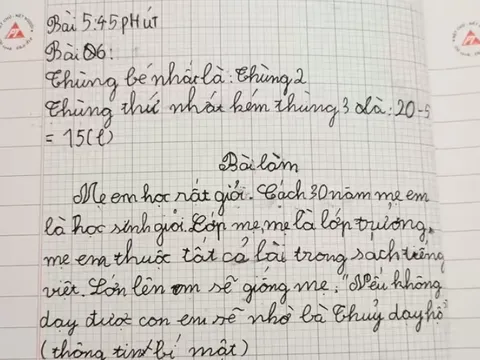 Bài 5:45 pHút
Bài 06:
Thùng bé nhất là: Thùng 2
Thùng thứ nhất kém thùng 3 là: 20-5
= 15(l)
Bài làm
Mẹ em học rất giỏi. Cách 30 năm mẹ em
là học sinh giỏi. Lớp mẹ, mẹ là lớp trưởng,
mẹ em thuộc tất cả bài trong sách tiếng
việt. Lớn lên em sẽ giống mẹ: "Nếu không
dạy được con em sẽ nhờ bà Thuỷ dạy hộ"
(thông tin bí mật)